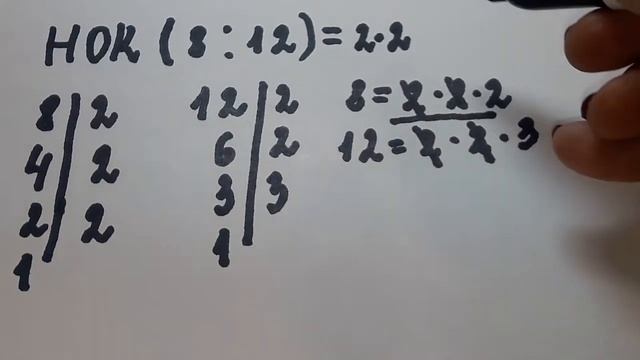 НОК (8 : 12) = 2 · 2
8 | 2
4 | 2
2 | 2
1
12 | 2
6 | 2
3 | 3
1
8 = 2 · 2 · 2
12 = 2 · 2 · 3